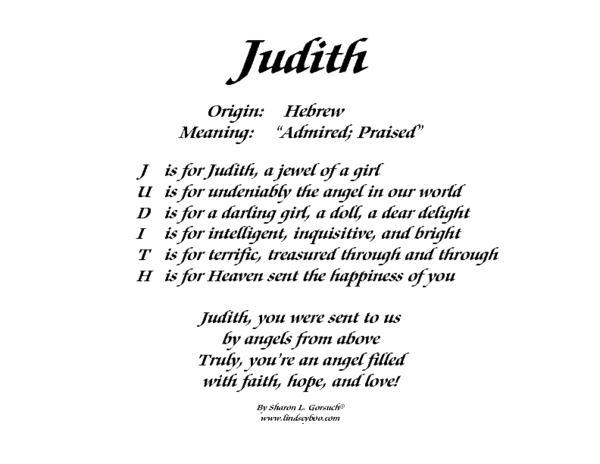 Judith
Origin: Hebrew
Meaning: “Admired; Praised”
J is for Judith, a jewel of a girl
U is for undeniably the angel in our world
D is for a darling girl, a doll, a dear delight
I is for intelligent, inquisitive, and bright
T is for terrific, treasured through and through
H is for Heaven sent the happiness of you
Judith, you were sent to us
by angels from above
Truly, you're an angel filled
with faith, hope, and love!
By Sharon L. Gorsuch©
www.lindseyboo.com